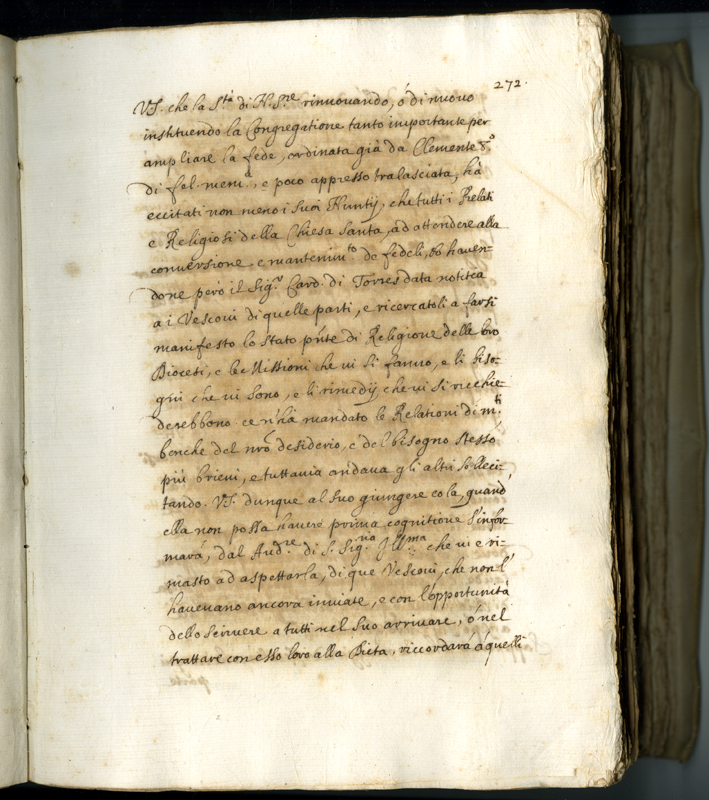 272.
VS. che la S.tà di N. S.re rinnovando, ó di nuovo
instituendo la Congregatione tanto importante per
ampliare la fede, ordinata già da Clemente 8.o
di fel. mem.a, e poco appresso tralasciata, há
eccitati non meno i suoi Nuntij, che tutti i Prelati
e Religiosi della Chiesa Santa, ad attendere alla
conversione e mantenim.to de fedeli, et haven-
done però il Sig.r Card. di Torres data notitia
a i Vescovi di quelle parti, e ricercatoli a farsi
manifesto lo stato pñte di Religione delle loro
Diocesi, e le Missioni che vi si fanno, e li biso-
gni che vi sono, e li rimedij che vi si richie-
derebbono ce n'há mandato le Relationi di m.ti
benche del nrõ desiderio, e del bisogno stesso
più brievi, e tuttavia andava gli altri solleci-
tando. VS. dunque al suo giungere colá, quand'
ella non possa havere prima cognitione s'infor-
mará, dal Aud.re di S. Sig.ria Ill.ma che vi e ri-
masto ad aspettarla, di que Vescovi, che non l'
havevano ancora inviate, e con l'opportunitá
dello scrivere a tutti nel suo arrivare, ó nel
trattare con esso loro alla Dieta, riccordará á quelli